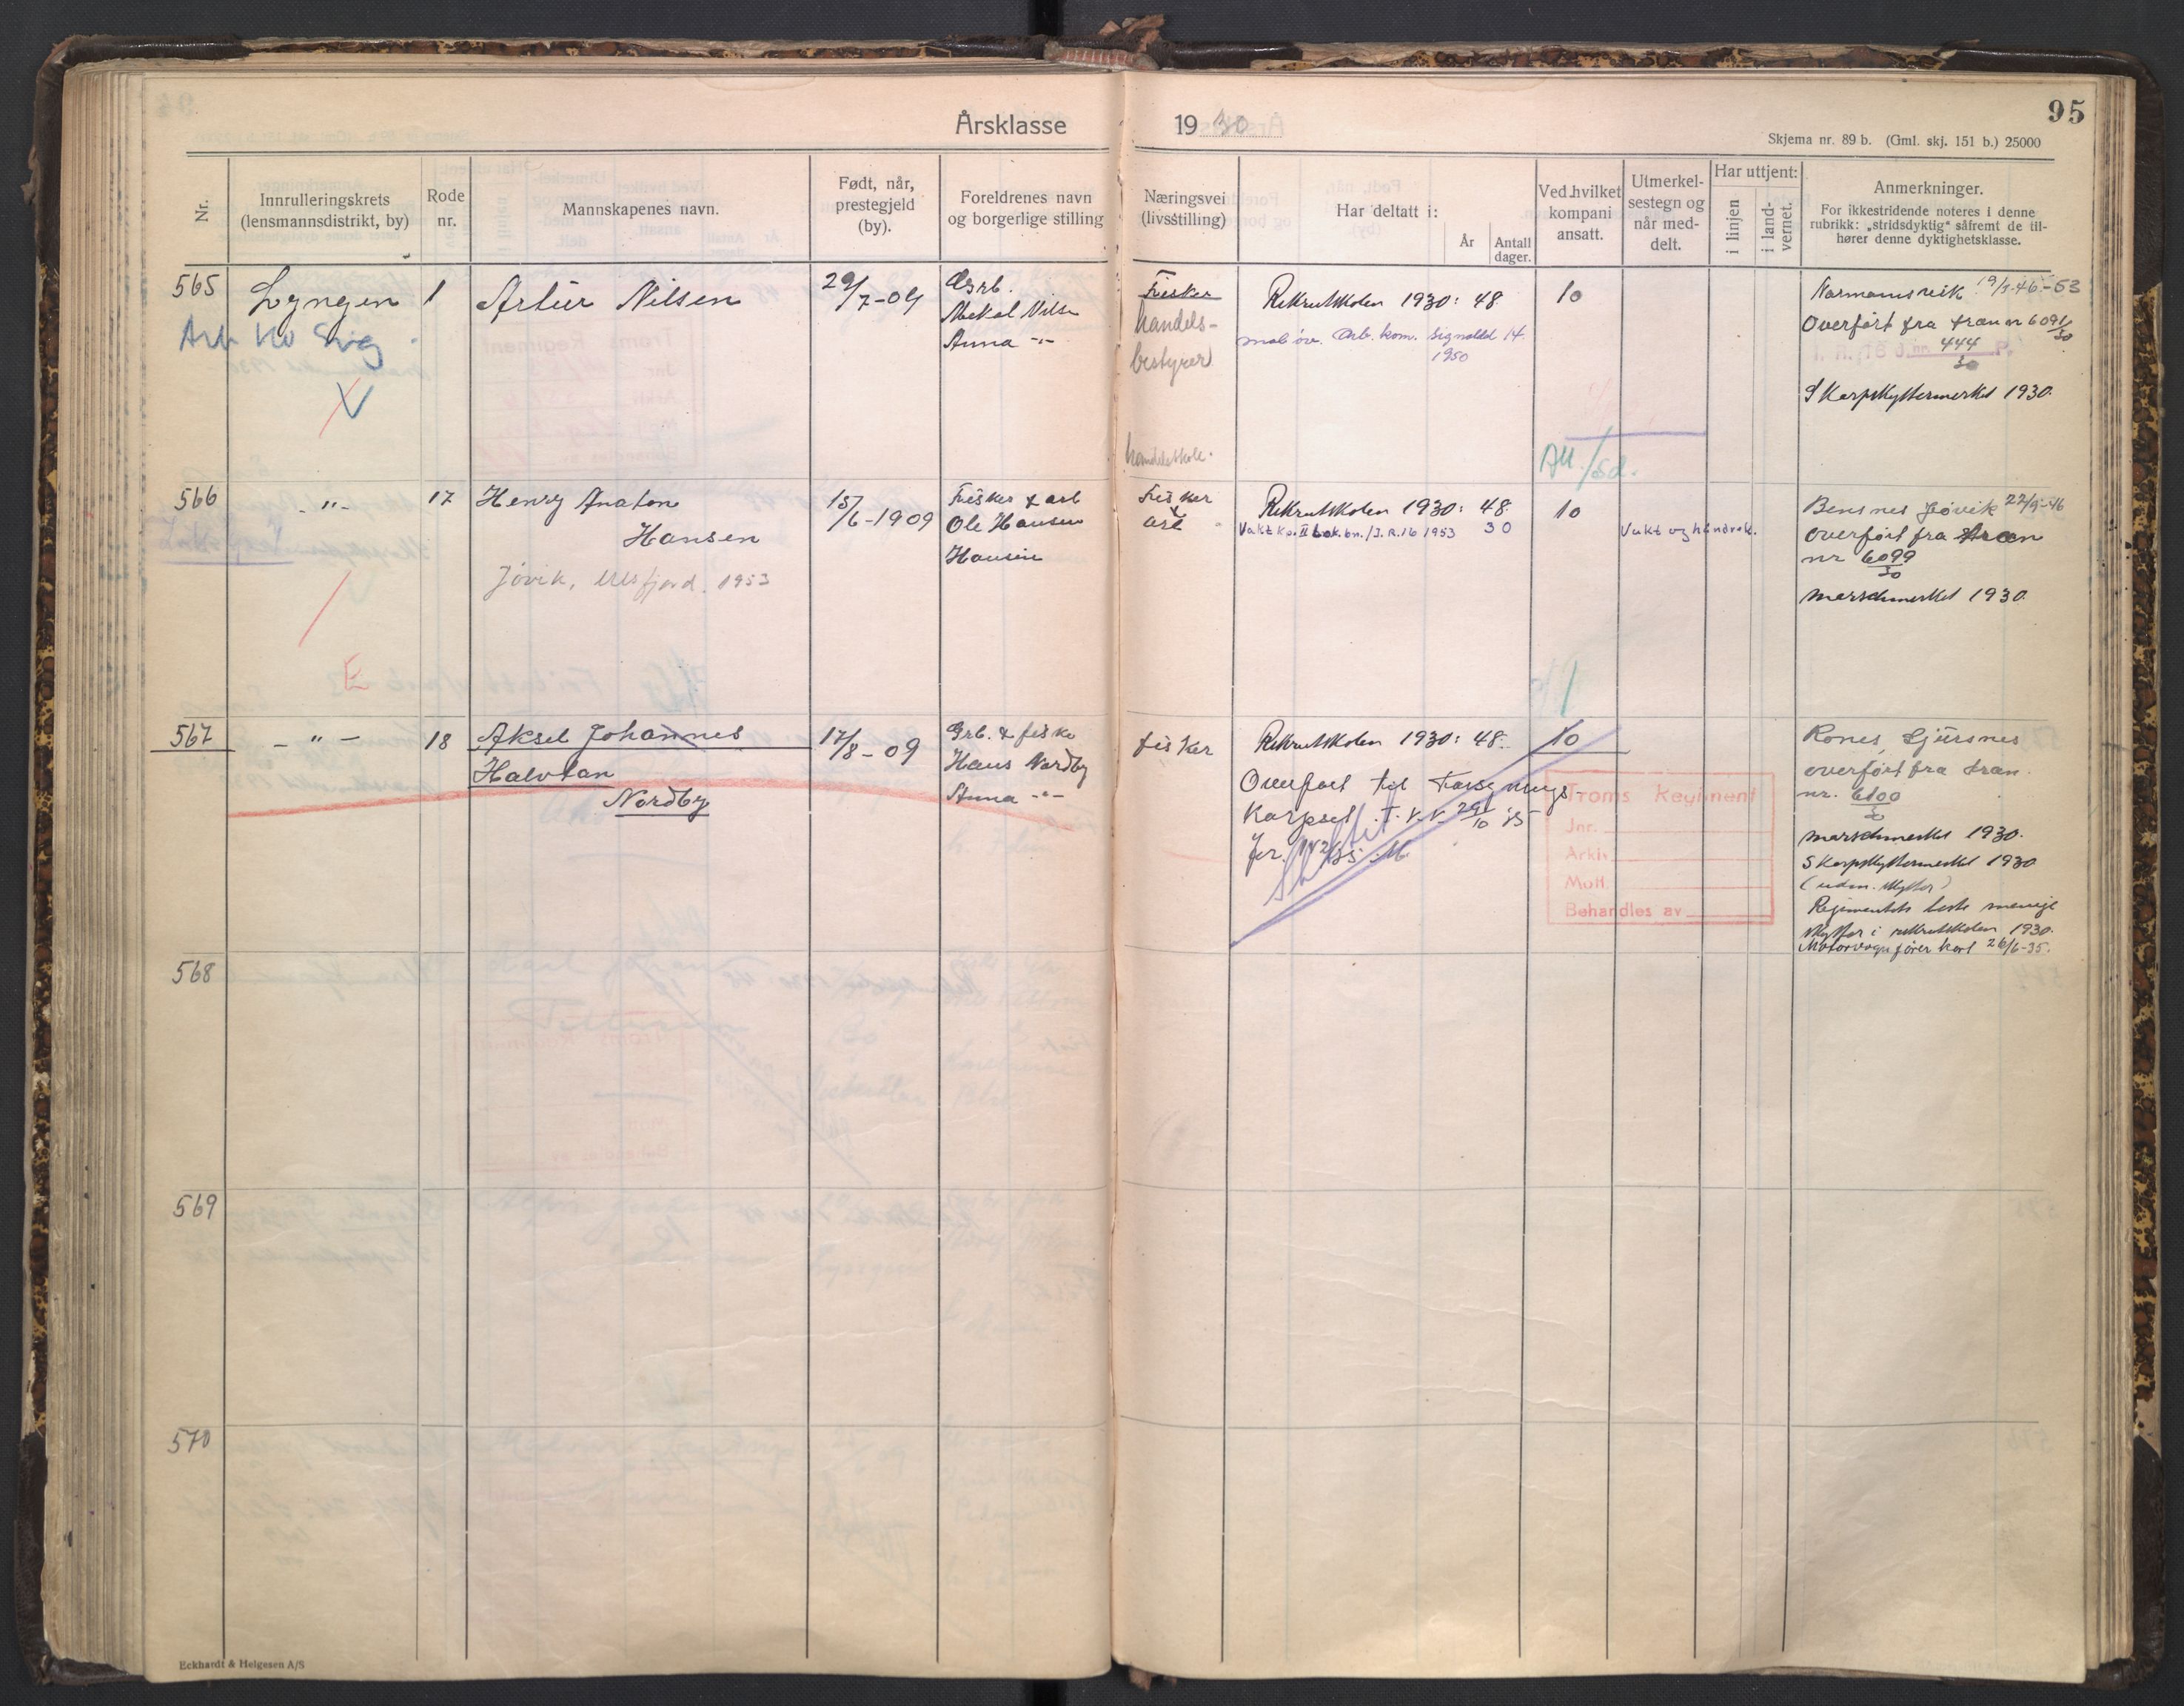 95
Årsklasse 1930
Skjema nr. 89 b. (Gml. skj. 151 b.) 25000
Nr.
Innrulleringskrets (lensmannsdistrikt, by)
Rode nr.
Mannskapenes navn.
Født, når, prestegjeld (by).
Foreldrenes navn og borgerlige stilling
Næringsvei (livsstilling)
Har deltatt i:
År
Antall dager.
Ved hvilket kompani ansatt.
Utmerkelsestegn og når meddelt.
Har uttjent:
i linjen
i landvernet.
Anmerkninger.
For ikkestridende noteres i denne rubrikk: „stridsdyktig“ såfremt de tilhører denne dyktighetsklasse.
565
Lyngen
1
Artur Nilsen
29/7-09
Nilsen
Anna -"-
Fisker
handels-
bestyrer
handelsskole.
Rekrutskolen 1930: 48
mob öv. Arb. kom. Signaldd 14.
1950
10
19/3-46-53
Overført fra tran nr 6091/30
I. R. 16 Jnr. 444/30 P.
Skarpskyttermerket 1930.
Arb Ko Sig
V
566
-"-
17
Henry Anaton
Hansen
Jøvik, Ulsfjord. 1953
15/6-1909
Fisker & arb
Ole Hansen
Hansine
Fisker
& arb
Rekrutskolen 1930: 48
Vakt Ko. II Lok. bn./I.R.16 1953 30
10
Vakt og håndvåk.
Bensnes Jøvik 22/5-46
overført fra tran
nr 6099/30
marschmerket 1930.
E
567
-"-
18
Aksel Johannes
Halvtan
Nordby
17/8-09
Grb. & fisker
Hans Nordby
Anna -"-
fisker
Rekrutskolen 1930: 48.
Overført til Forsynings-
Korpset
10
Troms Regiment
Jnr.
Arkiv
Mott.
Behandles av
Rones, Sjursnes
overført fra tran.
nr. 6100/30
marschmerket 1930.
Skarpskyttermerket 1930
(udm. skytter)
Regimentets beste menige
skytter i rekrutskolen 1930.
Motorvognførerkort 26/6-35.
568
569
570
Eckhardt & Helgesen A/S